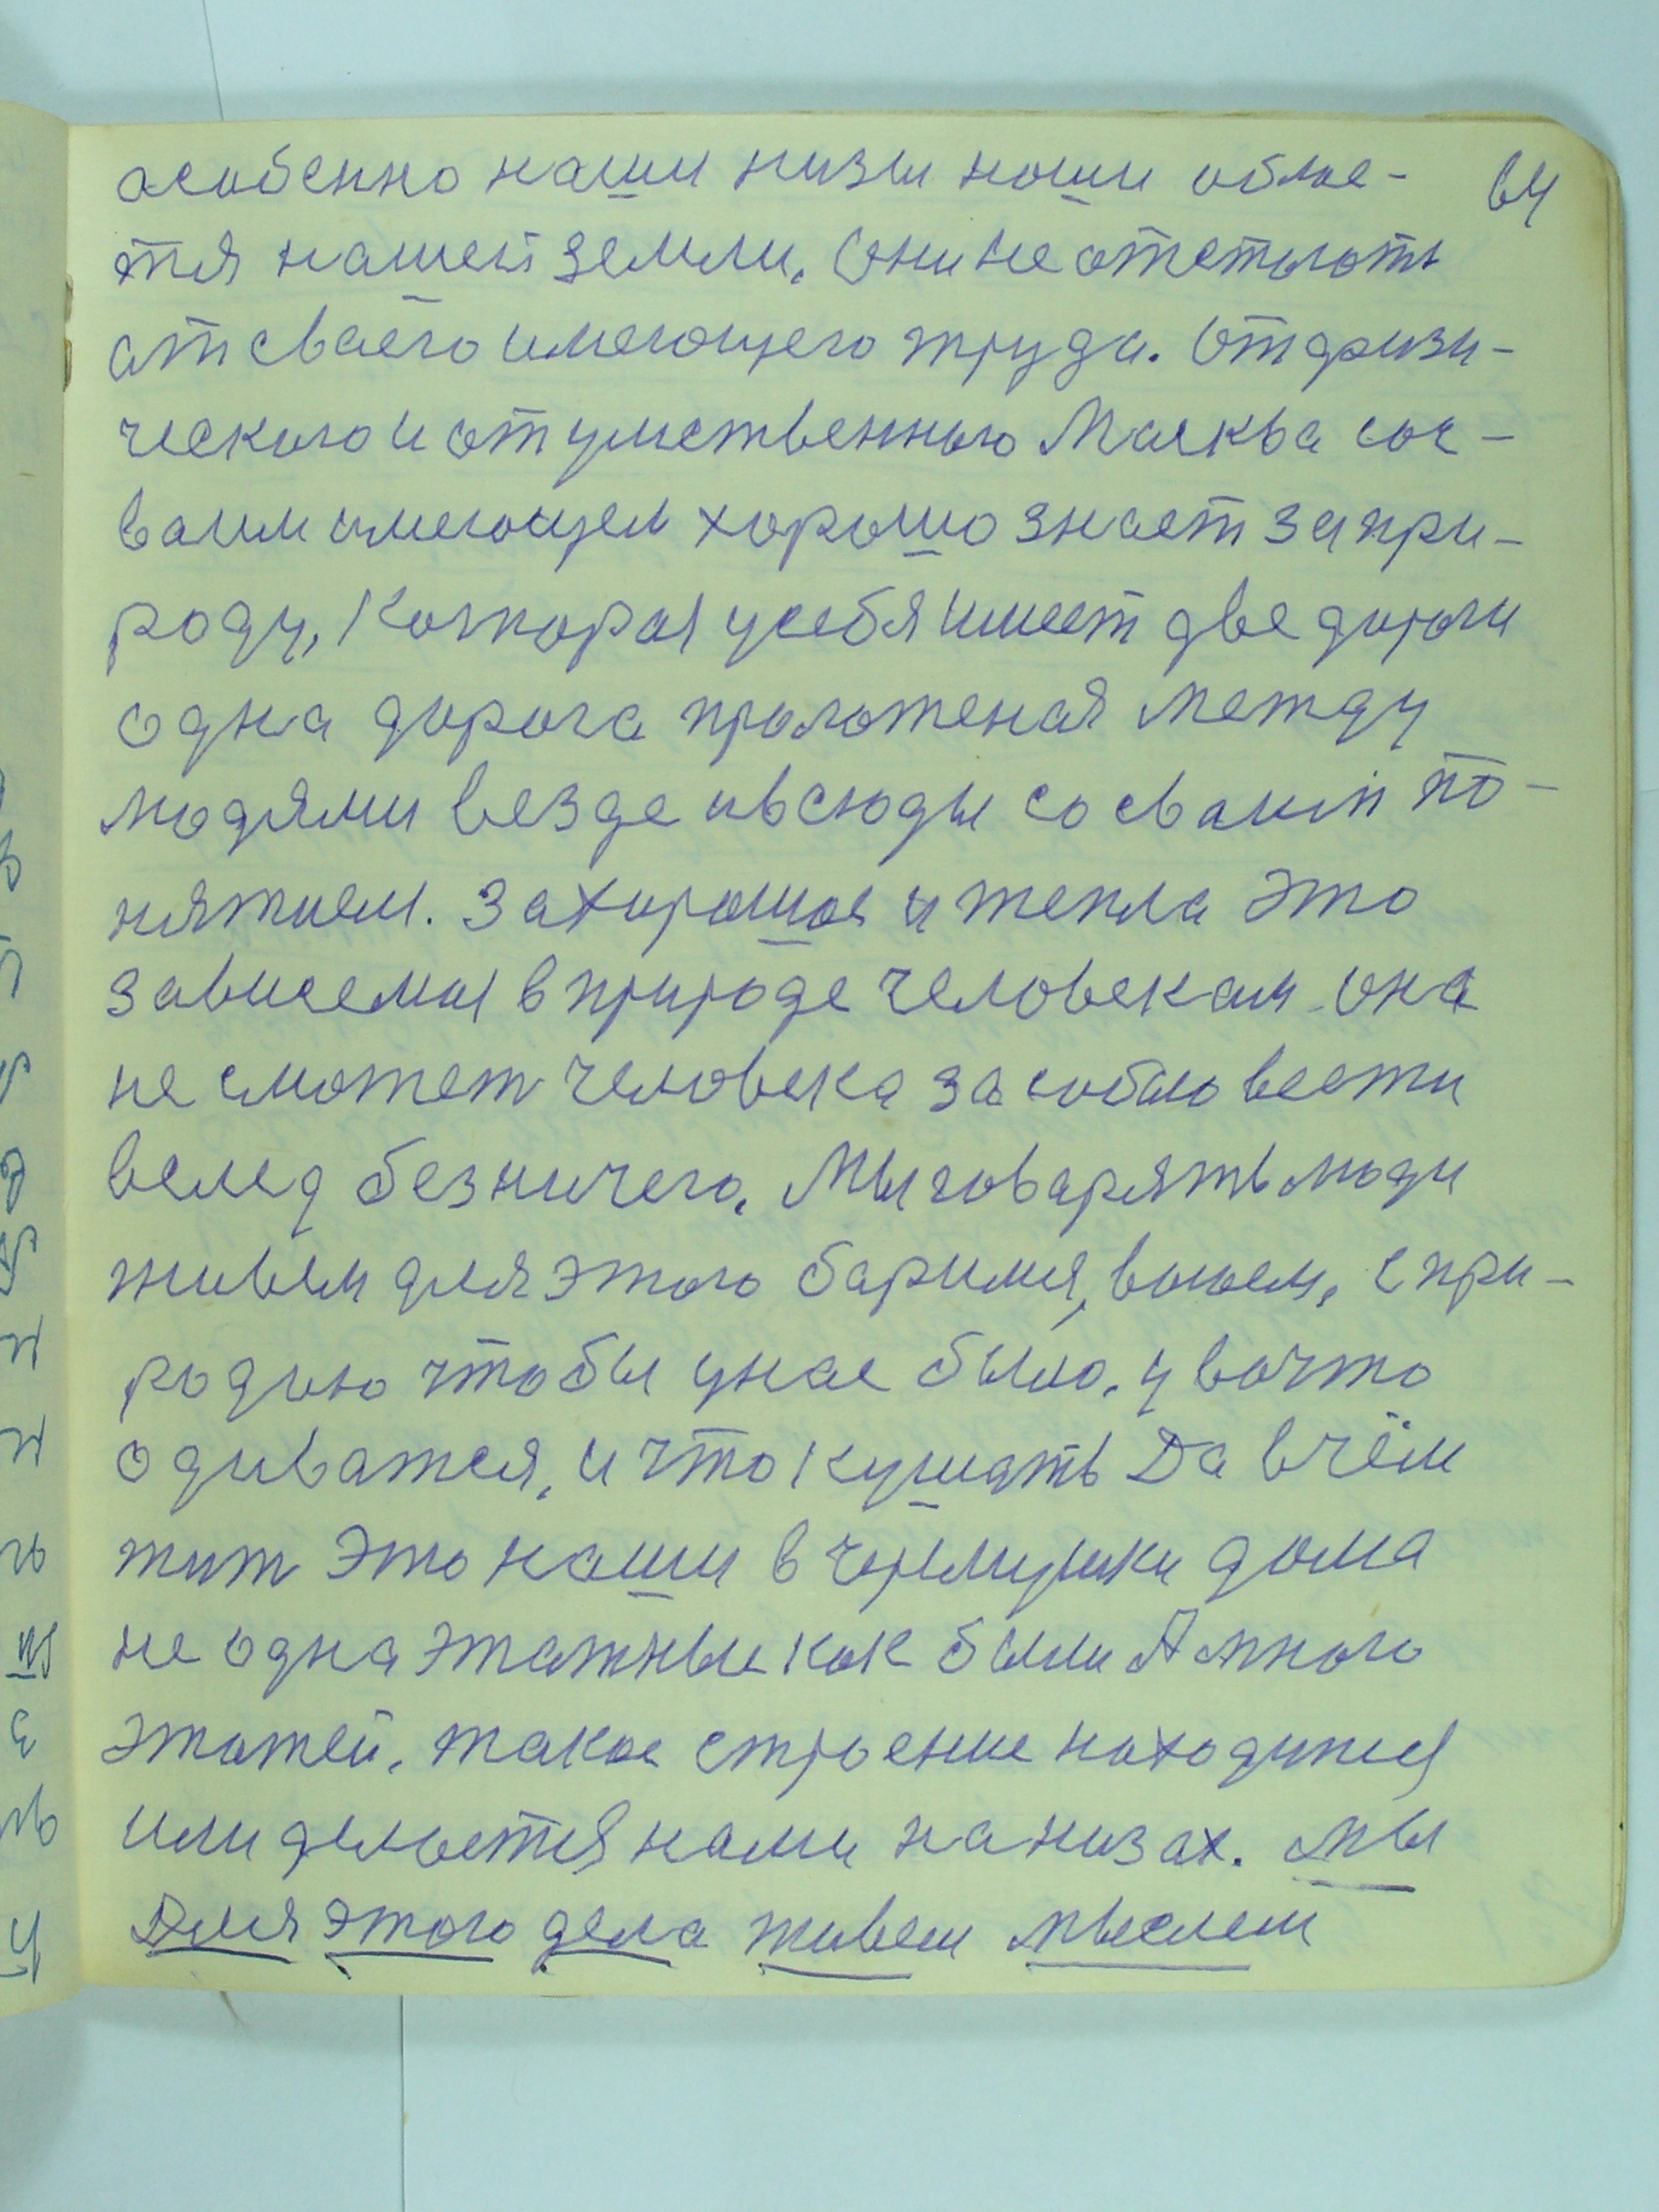 особенно наши низы наши облас- 64
ття нашей земли. Они не отстають
от сваего имеющего труда. От физи-
ческого и от умственного Масква сос-
ваим имеющем хорошо знает за при-
роду, Которая у себя имеет две дороги
одна дорога проложеная между
людями везде и всюды со сваим по-
нятием. За хорошое и тепла это
зависемая в природе человекам. она
не сможет человека за собою вести
вслед безничего. Мы говарять люди
живём для этого баримся, воюем, с при-
родою что бы у нас было. у вочто
одиватся, и что кушать Да в чём
жит это наши в черемушки дома
не одна этажные как были А много
этажей. такое строение находится
или делается нами на низах. мы
Для этого дела живем мыслем